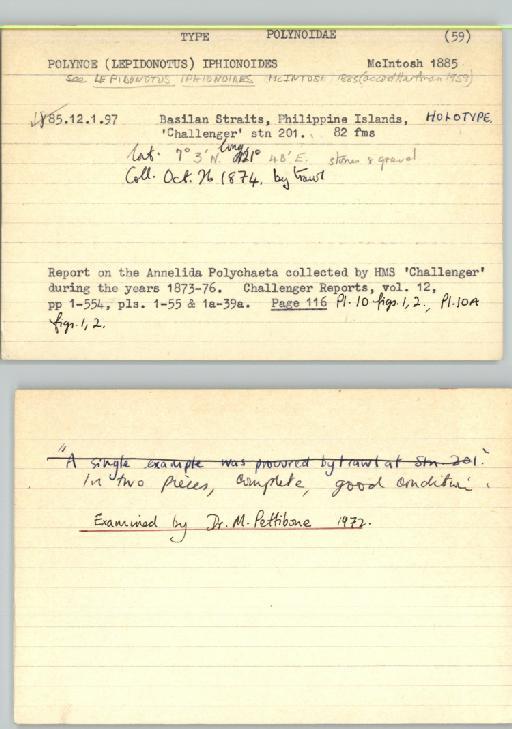 TYPE POLYNOIDAE (59)
POLYNOE (LEPIDONOTUS) IPHIONOIDES McIntosh 1885
see LEPIDONOTUS IPHIONOIDES McINTOSH 1885 (accord Hartman 1959)
85.12.1.97 Basilan Straits, Philippine Islands, HOLOTYPE.
'Challenger' stn 201. 82 fms
Lat. 7° 3' N. long 121° 48' E. stones & gravel
Coll. Oct. 26 1874. by trawl
Report on the Annelida Polychaeta collected by HMS 'Challenger'
during the years 1873-76. Challenger Reports, vol. 12,
pp 1-554, pls. 1-55 & 1a-39a. Page 116 Pl. 10 figs. 1, 2., Pl. 10A
figs. 1, 2.
"A single example was procured by trawl at Stn. 201."
In two pieces, complete, good condition.
Examined by Dr. M. Pettibone 1972.